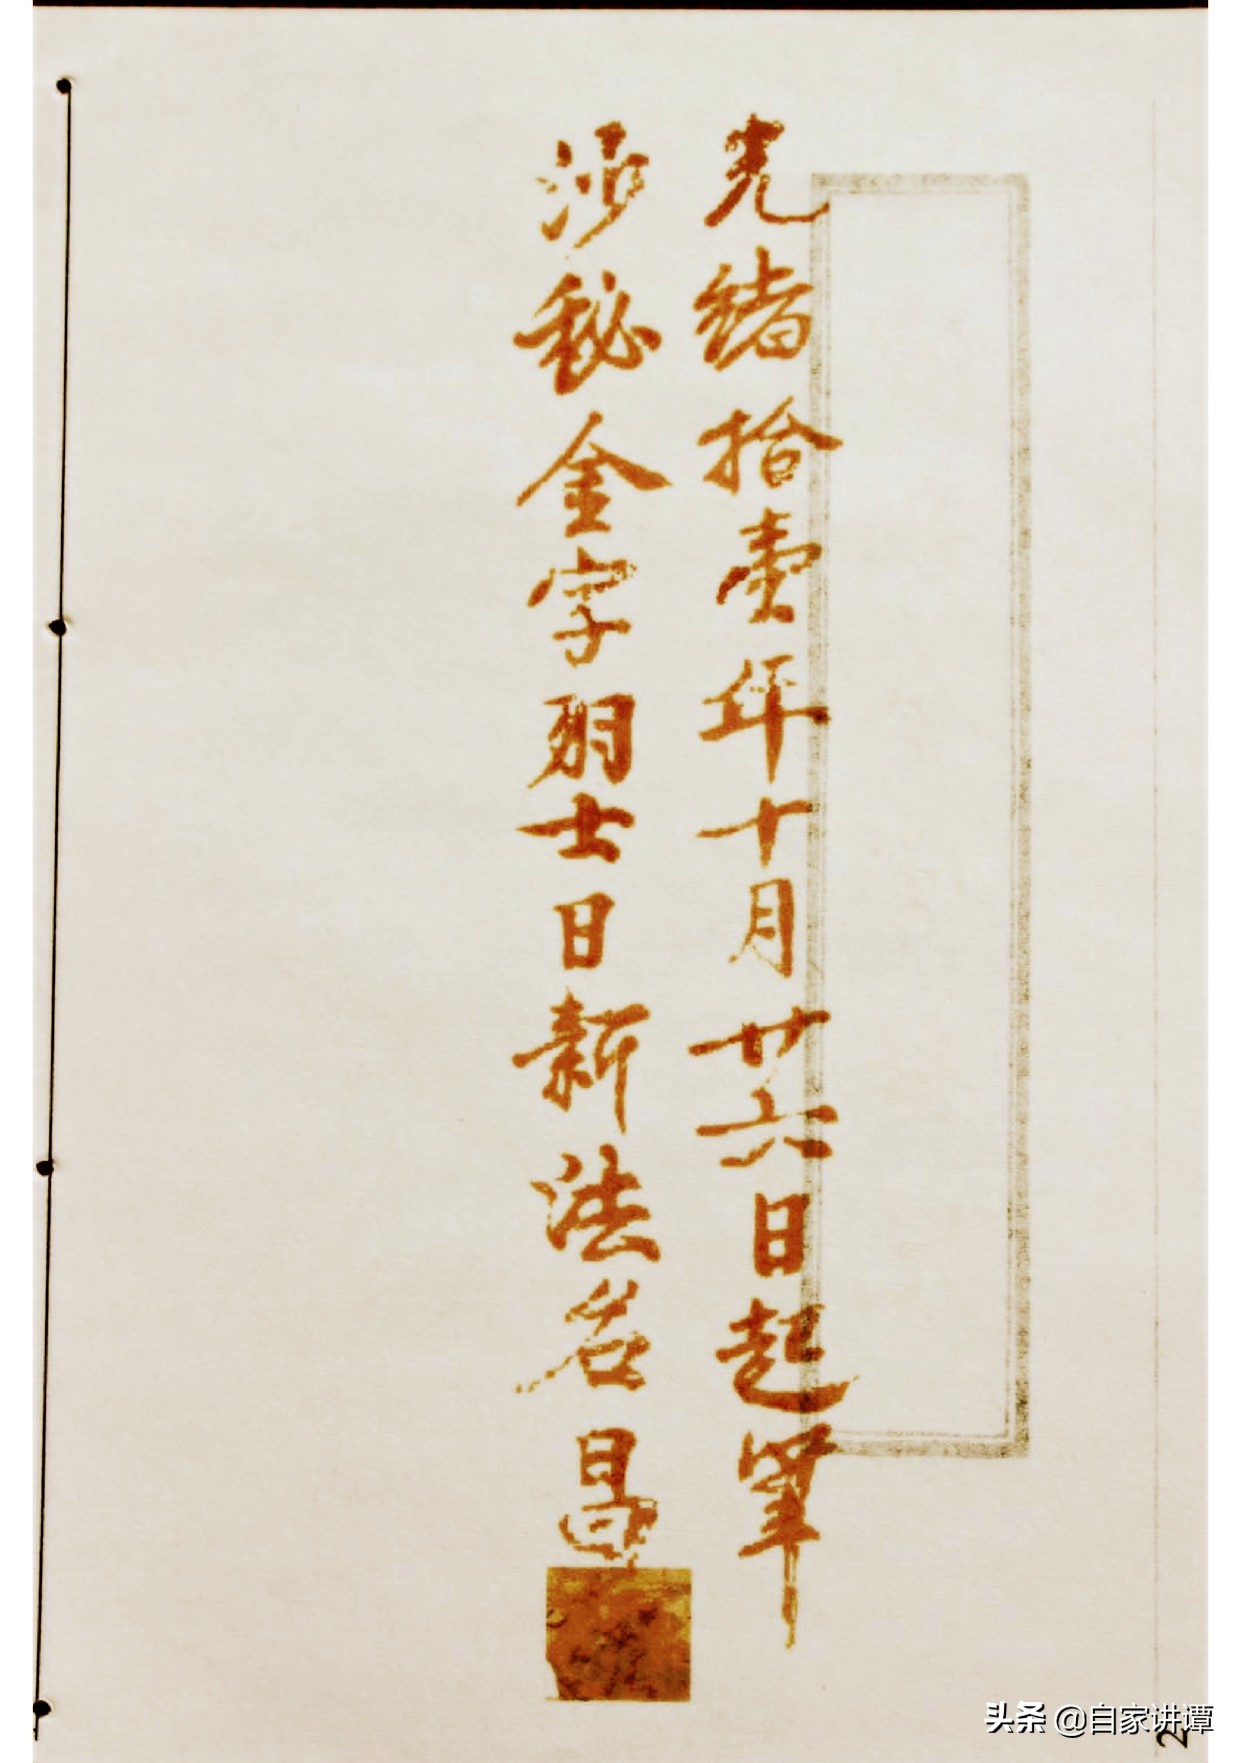 光緒拾壹年十月廿六日起筆
涉秘金字羽士日新法名昌
头条 @自家讲谭
2